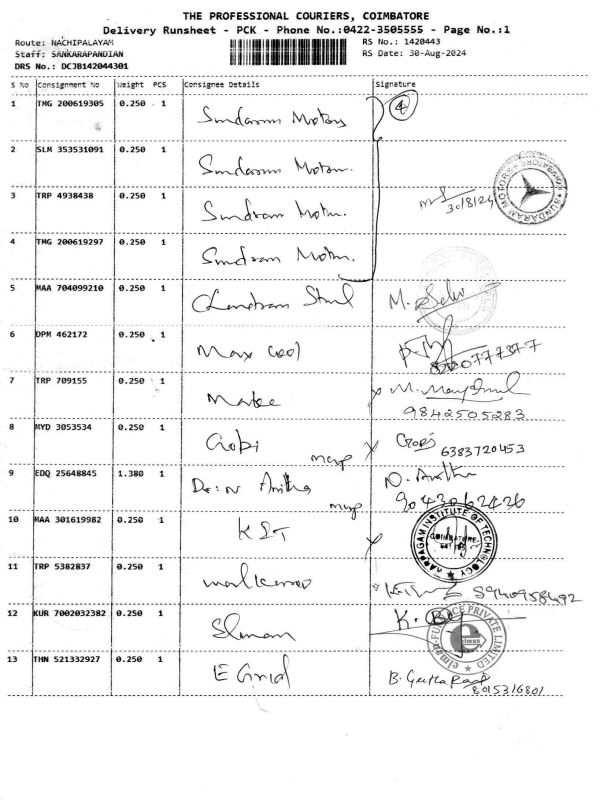 THE PROFESSIONAL COURIERS, COIMBATORE
Delivery Runsheet - PCK - Phone No.:0422-3505555 - Page No.:1
Route: NACHIPALAYAM
RS No.: 1420443
Staff: SANKARAPANDIAN
RS Date: 30-Aug-2024
DRS No.: DCJB142044301
S No Consignment No Weight PCS Consignee Details Signature
1 TMG 200619305 0.250 1 Sundaram Motors 4
2 SLM 353531091 0.250 1 Sundaram Motors.
3 TRP 4938438 0.250 1 Sundram Motors. 30/8/24
SUNDARAM MOTORS COIMBATORE
4 TMG 200619297 0.250 1 Sundram Motors.
5 MAA 704099210 0.250 1 M. Selvi
6 DPM 462172 0.250 1 Max cool
7 TRP 709155 0.250 1
9842505283
8 MYD 3053534 0.250 1 Gobi Gopi
6383720453
9 EDQ 25648845 1.380 1 Dr. N Anitha N. Anitha
9043062426
10 MAA 301619982 0.250 1 KIT
KARPAGAM INSTITUTE OF TECHNOLOGY
COIMBATORE
11 TRP 5382837 0.250 1
12 KUR 7002032382 0.250 1 Elman
elman
PRIVATE LIMITED
13 THN 521332927 0.250 1 E Grid B. Geetha
8015316801